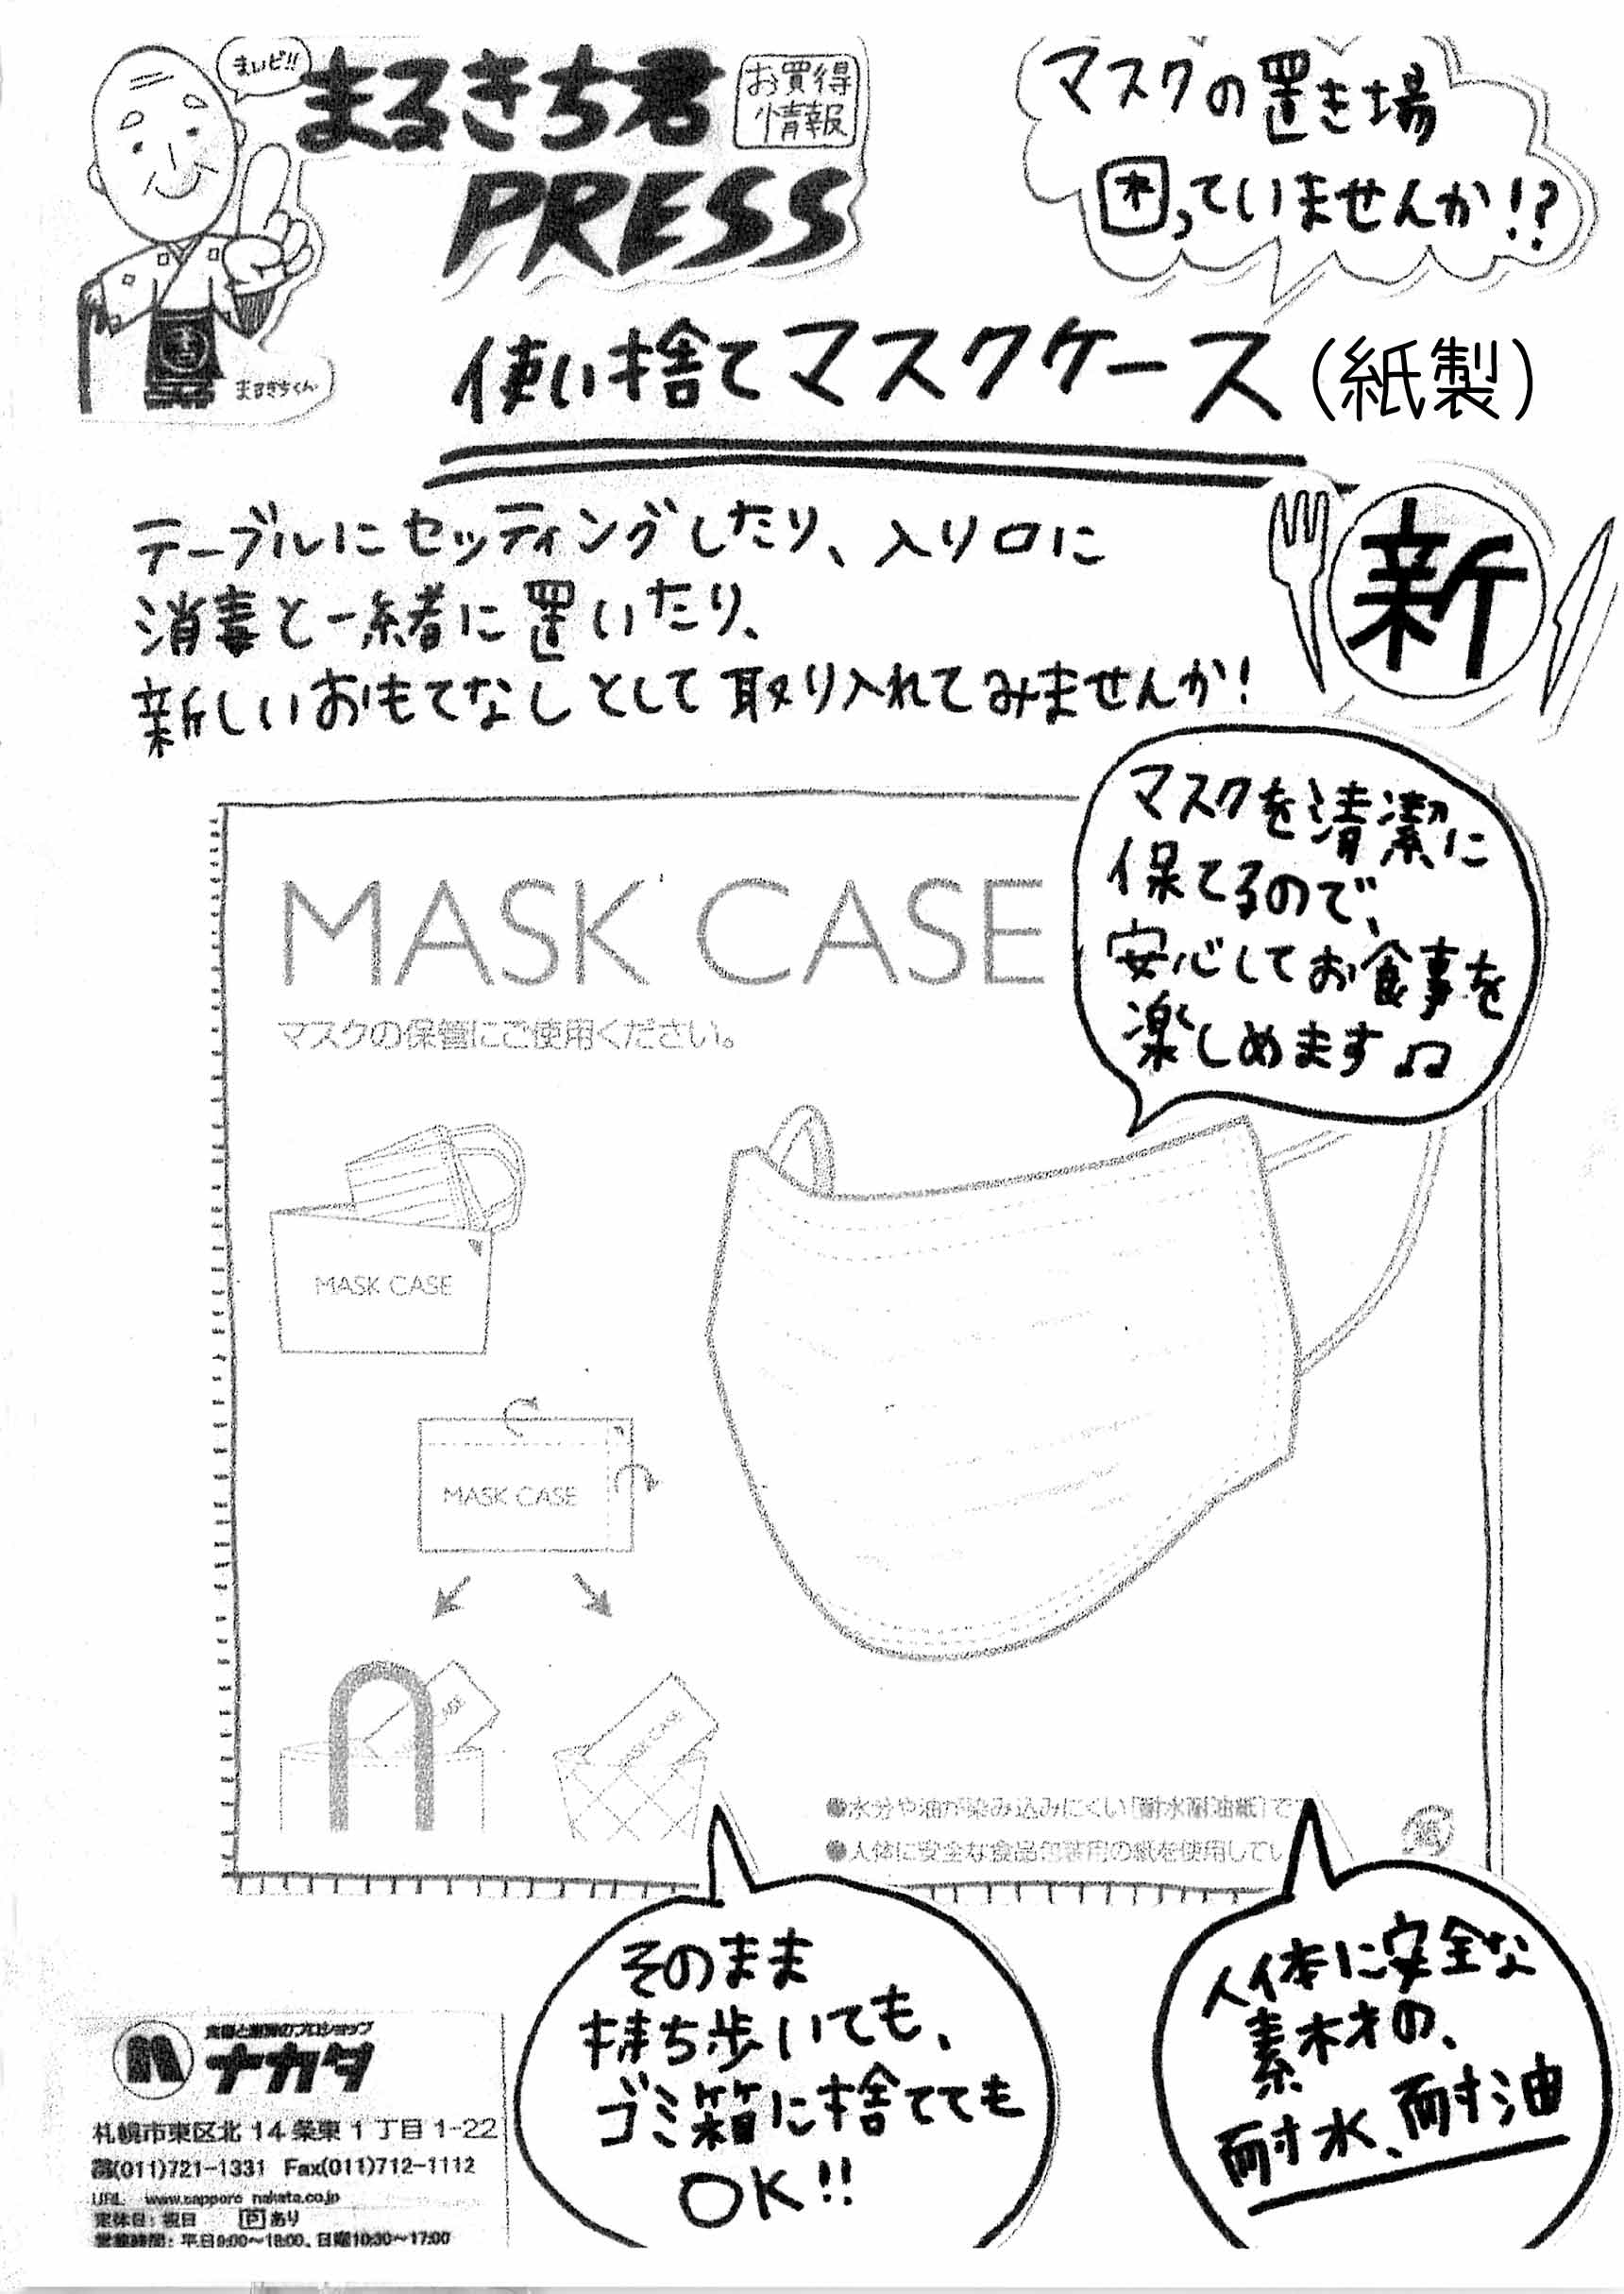 まいど!!
まるきち君
お買得
情報
PRESS
まるきちくん
マスクの置き場
困っていませんか!?
使い捨てマスクケース(紙製)
テーブルにセッティングしたり、入り口に
消毒と一緒に置いたり、
新しいおもてなしとして取り入れてみませんか!
新
マスクを清潔に
保てるので、
安心してお食事を
楽しめます♫
MASK CASE
マスクの保管にご使用ください。
MASK CASE
MASK CASE
●水分や油が染み込みにくい[耐水耐油紙]で
●人体に安全な食品包装用の紙を使用してい
そのまま
持ち歩いても、
ゴミ箱に捨てても
OK!!
人体に安全な
素材の、
耐水、耐油
食器と厨房のプロショップ
ナカタ
札幌市東区北14条東1丁目1-22
(011)721-1331 Fax(011)712-1112
URL www.sapporo-nakata.co.jp
定休日:祝日 Pあり
営業時間:平日9:00~18:00、日曜10:30~17:00